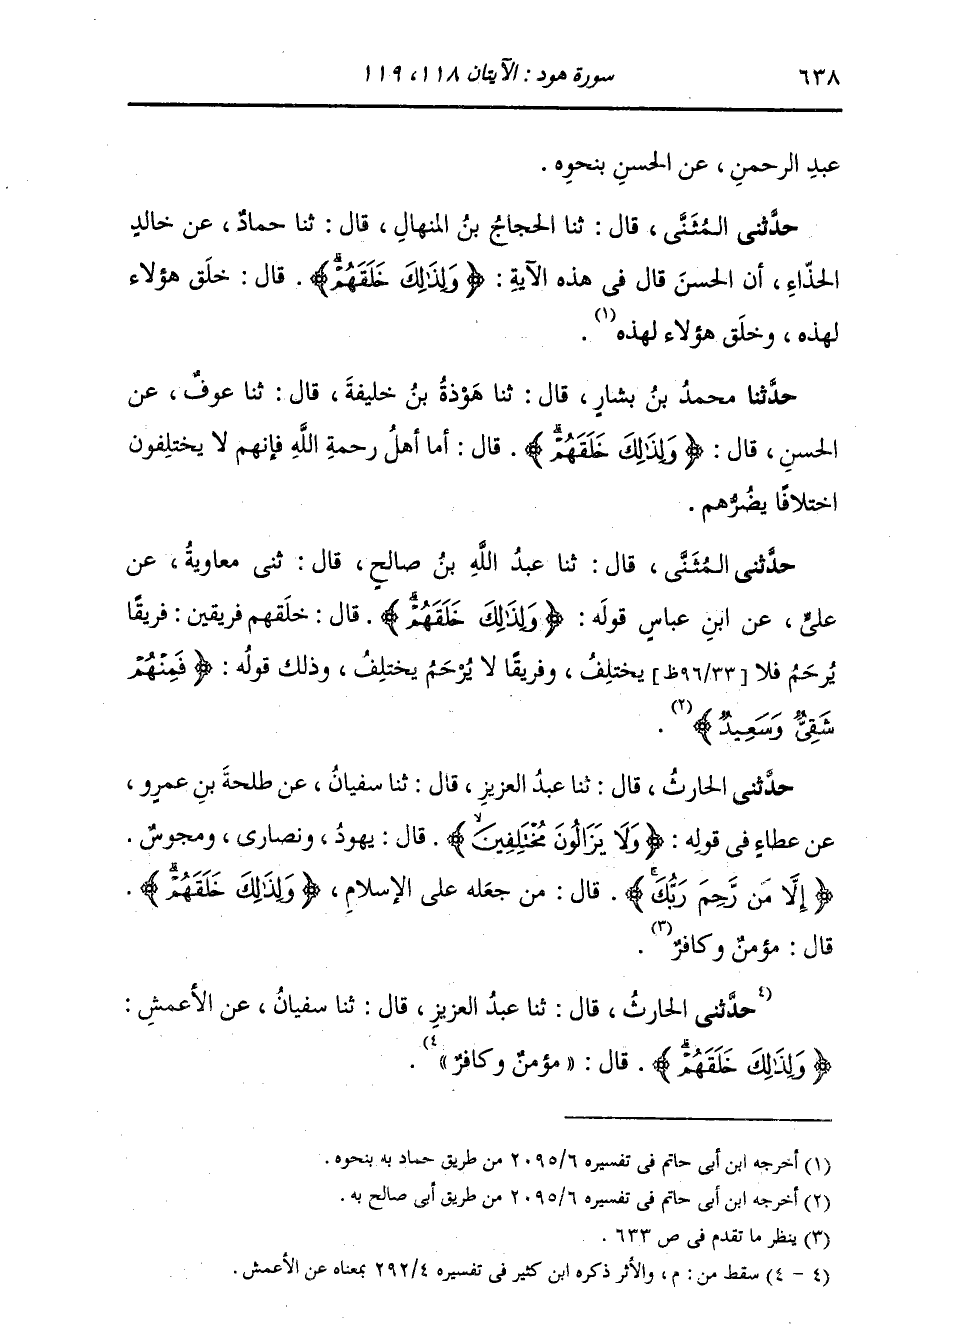 ٦٣٨ سورة هود : الآيتان ١١٨، ١١٩
عبدِ الرحمنِ ، عن الحسنِ بنحوِه .
حدَّثنى المُثَنَّى ، قال : ثنا الحجاجُ بنُ المنهالِ ، قال : ثنا حمادٌ ، عن خالدٍ
الحذّاءِ ، أن الحسنَ قال فى هذه الآيةِ : ﴿ وَلِذَٰلِكَ خَلَقَهُمْۗ ﴾ . قال : خلَق هؤلاء
لهذه ، وخلَق هؤلاء لهذه(١) .
حدَّثنا محمدُ بنُ بشارٍ ، قال : ثنا هَوْذةُ بنُ خليفةَ ، قال : ثنا عوفٌ ، عن
الحسنِ ، قال : ﴿ وَلِذَٰلِكَ خَلَقَهُمْۗ ﴾ . قال : أما أهلُ رحمةِ اللَّهِ فإنهم لا يختلِفون
اختلافًا يضُرُّهم .
حدَّثنى المُثَنَّى ، قال : ثنا عبدُ اللَّهِ بنُ صالحٍ ، قال : ثنى معاويةُ ، عن
علىٍّ ، عن ابنِ عباسٍ قولَه : ﴿ وَلِذَٰلِكَ خَلَقَهُمْۗ ﴾ . قال : خلَقهم فريقين : فريقًا
يُرحَمُ فلا [٩٦/٣٣ظ] يختلِفُ ، وفريقًا لا يُرْحَمُ يختلِفُ ، وذلك قولُه : ﴿ فَمِنْهُمْ
شَقِىٌّ وَسَعِيدٌ ﴾(٢) .
حدَّثنى الحارثُ ، قال : ثنا عبدُ العزيزِ ، قال : ثنا سفيانُ ، عن طلحةَ بنِ عمرٍو ،
عن عطاءٍ فى قولِه : ﴿ وَلَا يَزَالُونَ مُخْتَلِفِينَۙ ﴾ . قال : يهودُ ، ونصارى ، ومجوسٌ .
﴿ إِلَّا مَن رَّحِمَ رَبُّكَۚ ﴾ . قال : من جعَله على الإسلامِ ، ﴿ وَلِذَٰلِكَ خَلَقَهُمْۗ ﴾ .
قال : مؤمنٌ وكافرٌ(٣) .
(٤حدَّثنى الحارثُ ، قال : ثنا عبدُ العزيزِ ، قال : ثنا سفيانُ ، عن الأعمشِ :
﴿ وَلِذَٰلِكَ خَلَقَهُمْۗ ﴾ . قال : « مؤمنٌ وكافرٌ »٤) .
(١) أخرجه ابن أبى حاتم فى تفسيره ٢٠٩٥/٦ من طريق حماد به بنحوه .
(٢) أخرجه ابن أبى حاتم فى تفسيره ٢٠٩٥/٦ من طريق أبى صالح به .
(٣) ينظر ما تقدم فى ص ٦٣٣ .
(٤ - ٤) سقط من : م ، والأثر ذكره ابن كثير فى تفسيره ٢٩٢/٤ بمعناه عن الأعمش .